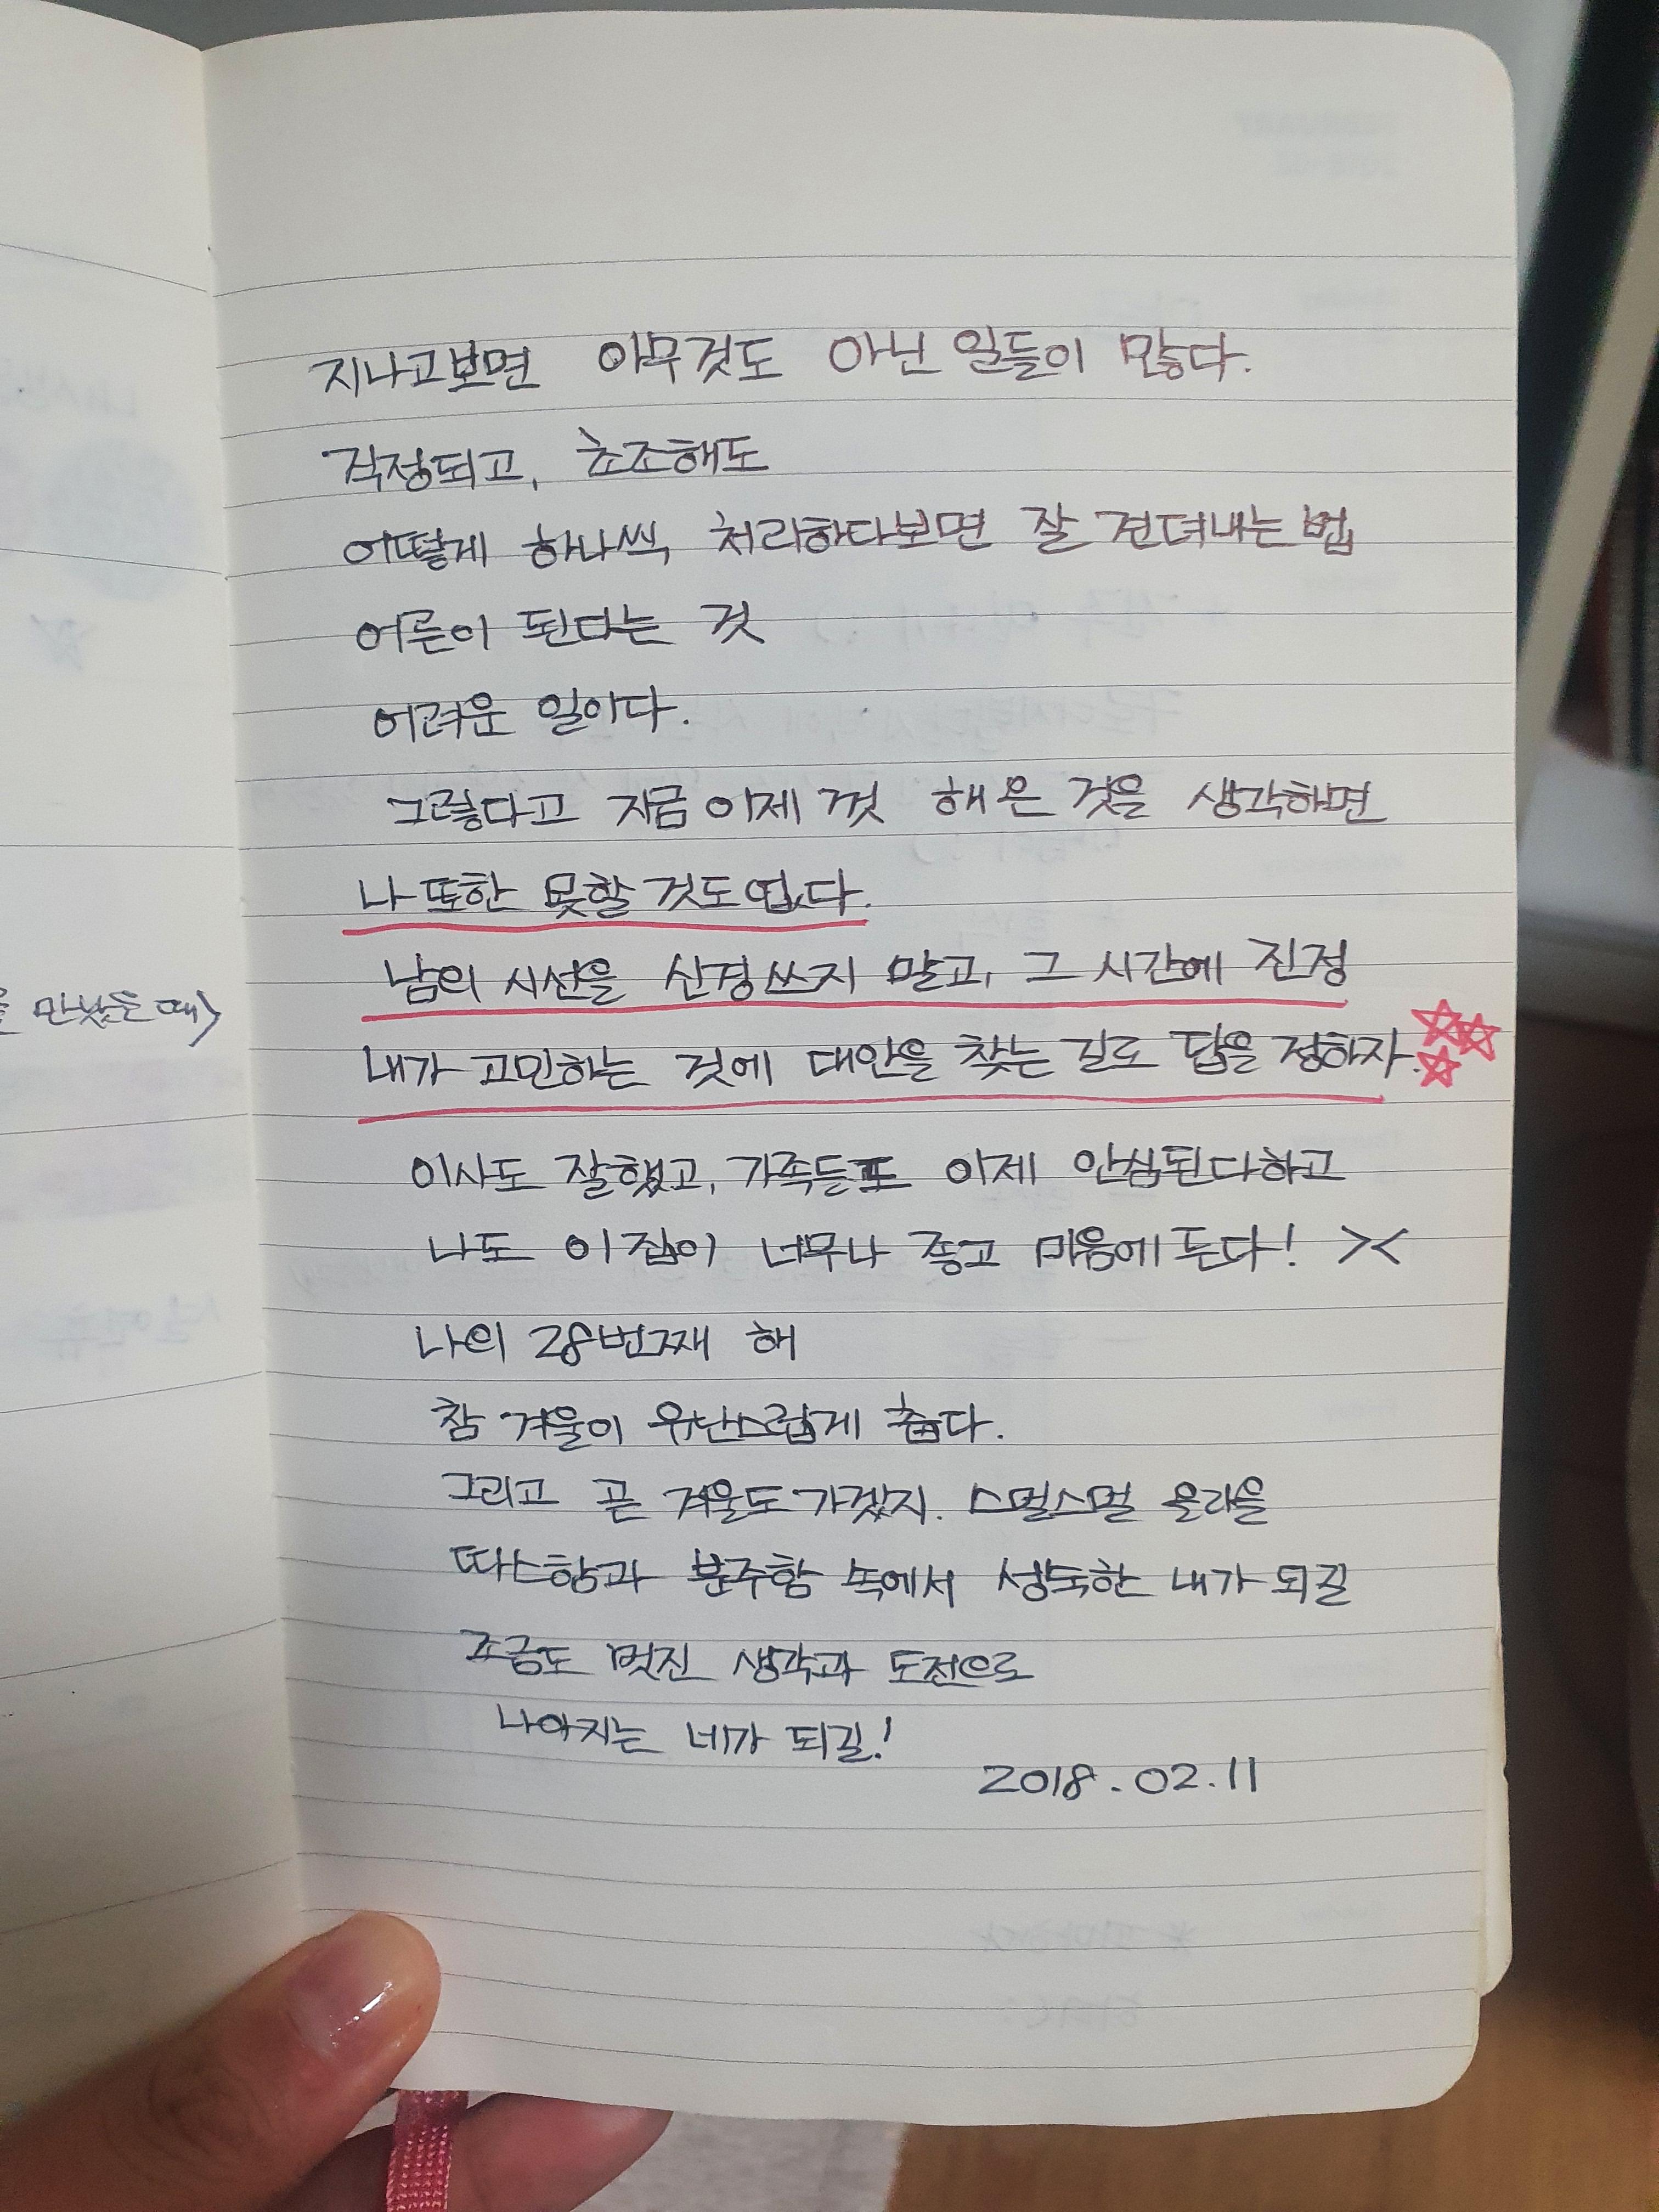 를 만났는 때)
지나고보면 아무것도 아닌 일들이 많다.
걱정되고, 초조해도
어떻게 하나씩 처리하다보면 잘 견뎌내는 법
어른이 된다는 것
어려운 일이다.
그렇다고 지금 이제 껏 해온 것을 생각하면
나 또한 못할 것도 없다.
남의 시선을 신경쓰지 말고, 그 시간에 진정
내가 고민하는 것에 대안을 찾는 길로 답을 정하자.
이사도 잘했고, 가족들도 이제 안심된다하고
나도 이 집이 너무나 좋고 마음에 든다! ><
나의 28번째 해
참 겨울이 유난스럽게 춥다.
그리고 곧 겨울도 가겠지. 스멀스멀 올라올
따스함과 분주함 속에서 성숙한 내가 되길
조금도 멋진 생각과 도전으로
나아지는 네가 되길!
2018.02.11